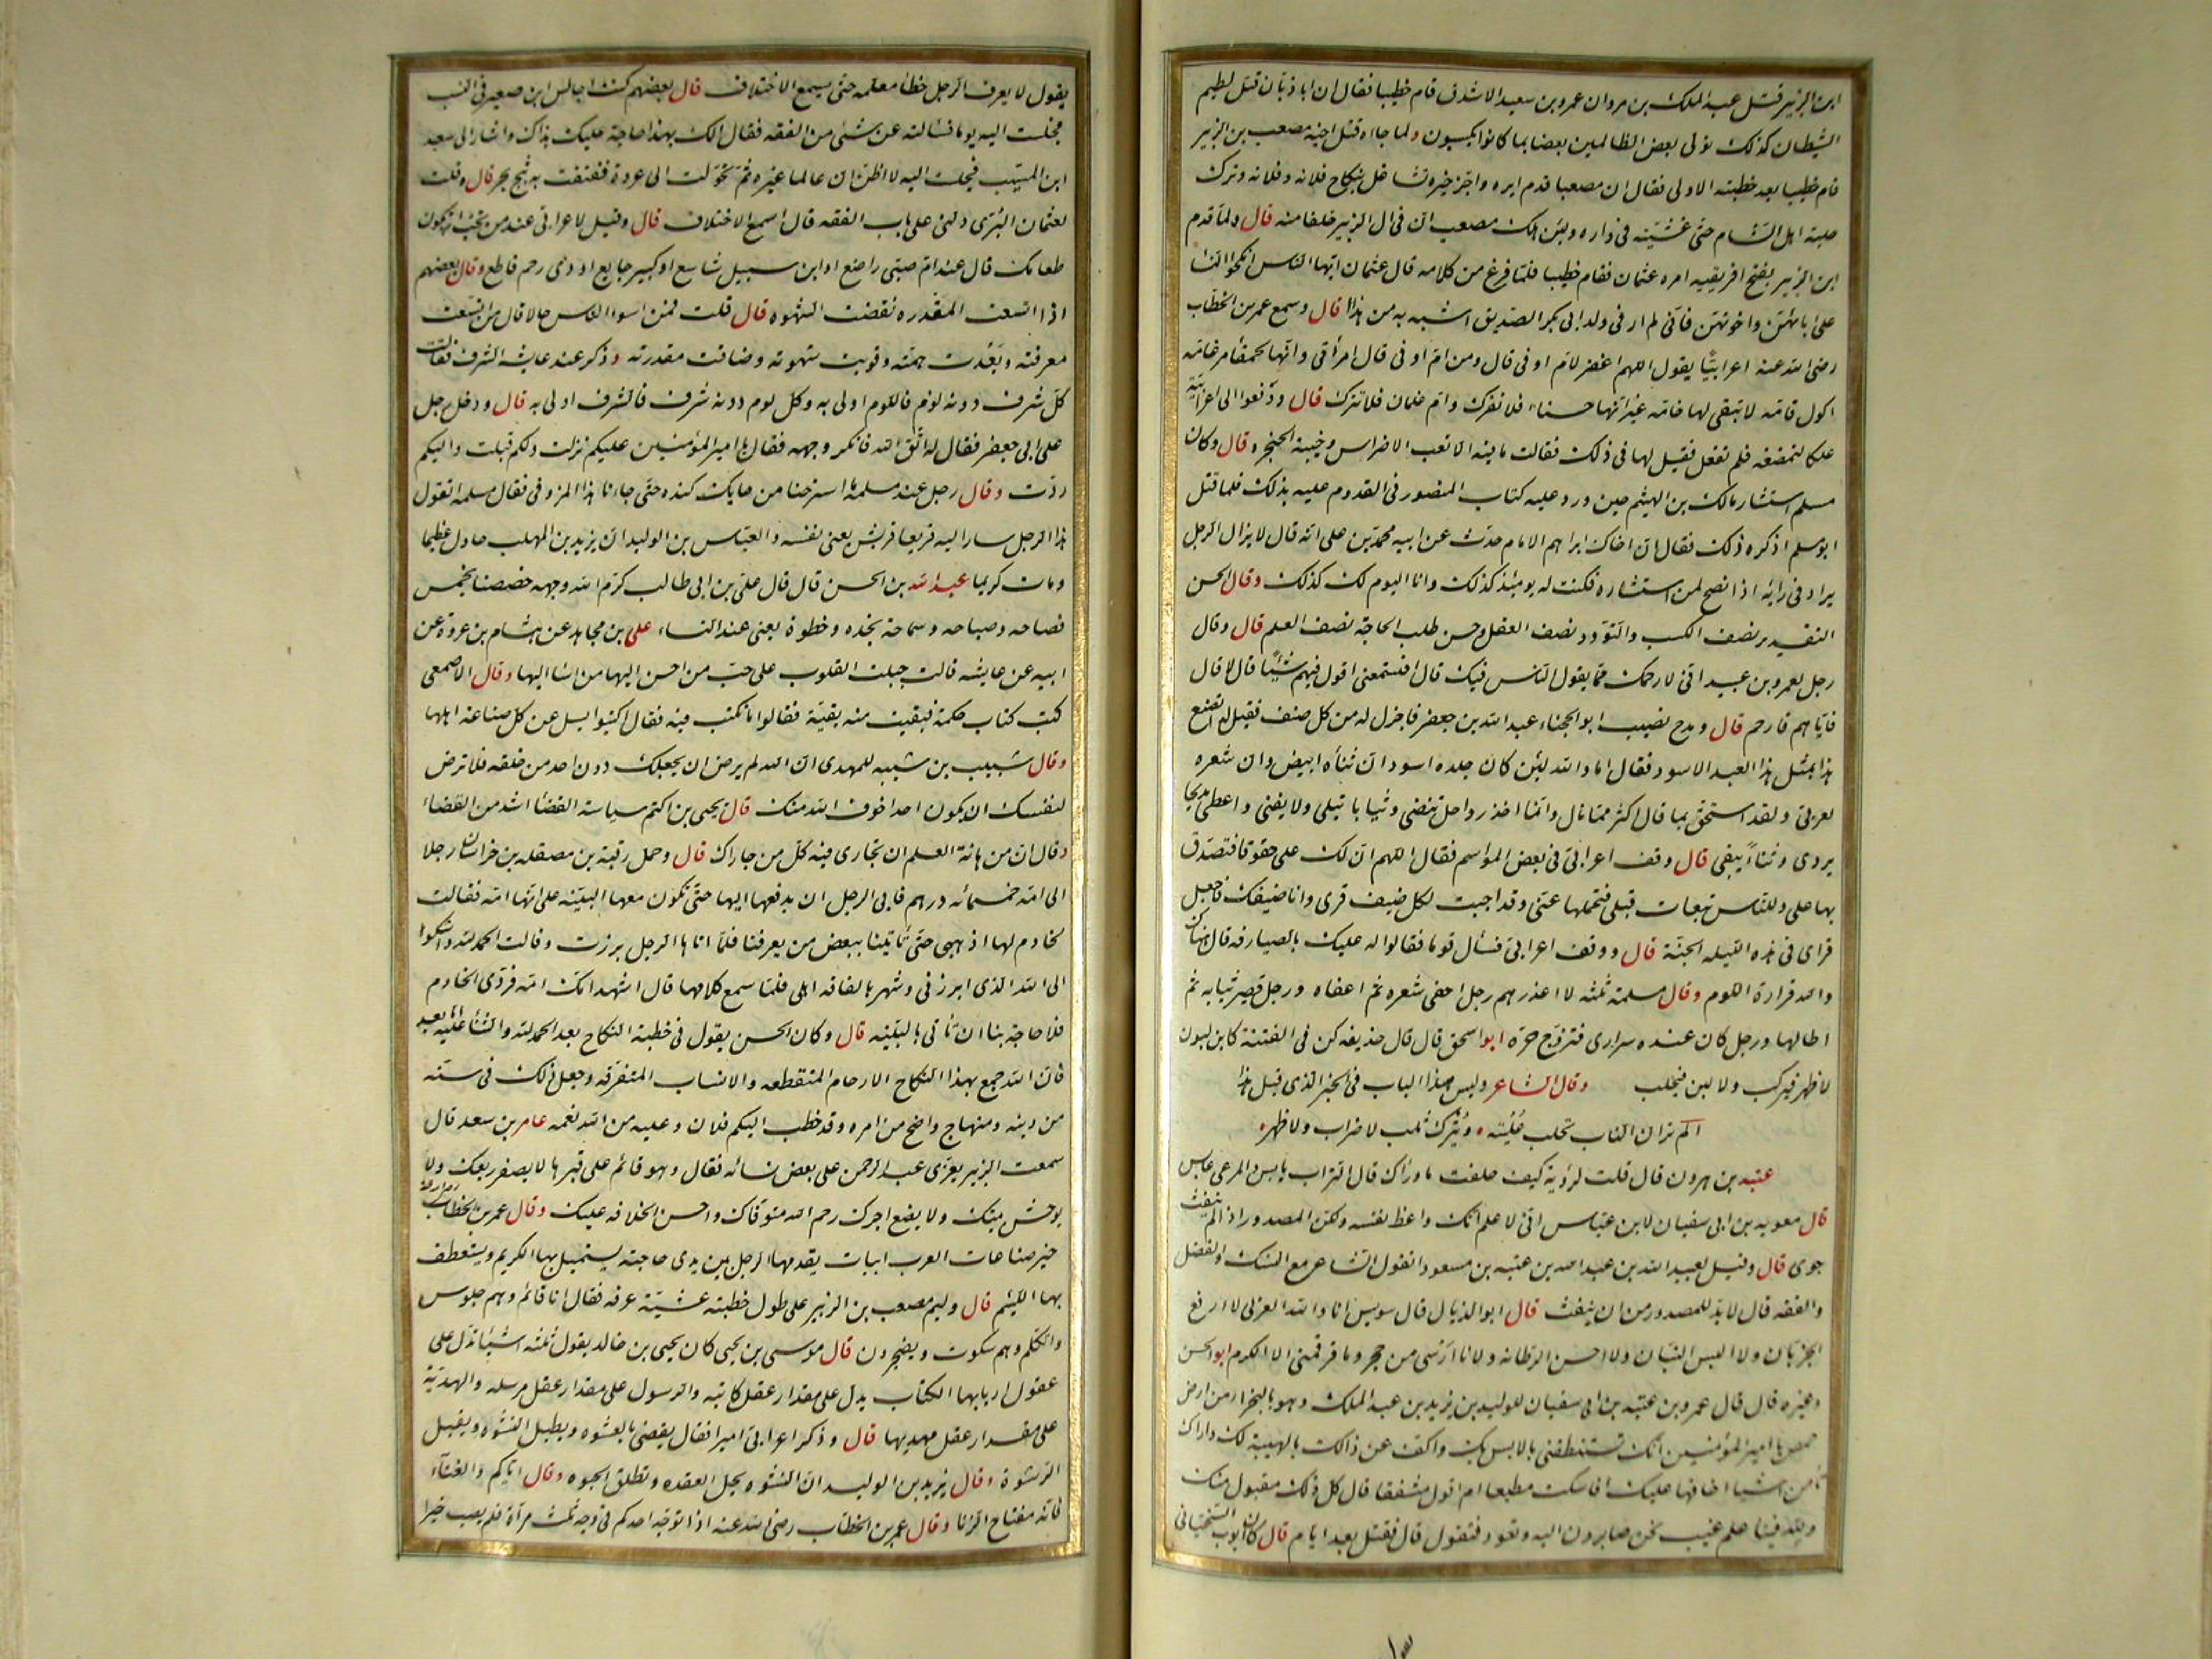 ابن الزبير قتل عبد الملك بن مروان عمرو بن سعيد الاشدق قام خطيبا فقال ان ابا ذبان قتل لطيم
الشيطان كذلك نولى بعض الظالمين بعضا بما كانوا يكسبون ولما جاءه قتل اخيه مصعب بن الزبير
قام خطيبا بعد خطبته الاولى فقال ان مصعبا قدم ايره واخر خيره تشاغل بنكاح فلانه وفلانه وترك
حلبة اهل الشام حتى غشيته فى داره ولئن هلك مصعب ان فى ال الزبير خلفا منه قال ولما قدم
ابن الزبير بفتح افريقيه امره عثمان فقام خطيبا فلما فرغ من كلامه قال عثمان ايها الناس انكحوا النسا
على ابائهن واخوتهن فانى لم ار فى ولد ابى بكر الصديق اشبه به من هذا قال وسمع عمر بن الخطاب
رضى الله عنه اعرابيا يقول اللهم اغفر لام اوفى قال ومن ام اوفى قال امرأتى وانها لحمقا مرغامه
اكول قامه لا تبقى لها خامه غير انها حسناء فلا تفرك وام غلمان فلا تترك قال ودفعوا الى اعرابية
علكا لتمضغه فلم تفعل فقيل لها فى ذلك فقالت ما فيه الا تعب الاضراس وخيبة الحنجره قال وكان
مسلم استشار مالك بن الهيثم حين ورد عليه كتاب المنصور فى القدوم عليه بذلك فلما قتل
ابو مسلم اذكره ذلك فقال ان اخاك ابراهيم الامام حدث عن ابيه محمد بن على انه قال لا يزال الرجل
يزاد فى رأيه اذا نصح لمن استشاره فكنت له يومئذ كذلك وانا اليوم لك كذلك وقال الحسن
التقدير نصف الكسب والتودد نصف العقل وحسن طلب الحاجة نصف العلم قال وقال
رجل لعمرو بن عبيد انى لارحمك مما يقول الناس فيك قال افتسمعنى اقول فيهم شيئا قال لا قال
فاياهم فارحم قال ومدح نصيب ابو الحجناء عبد الله بن جعفر فاجزل له من كل صنف فقيل له اتصنع
هذا بمثل هذا العبد الاسود فقال اما والله لئن كان جلده اسود ان ثناءه ابيض وان شعره
لعربى ولقد استحق بما قال اكثر مما نال وانما اخذ رواحل تنضى وثيابا تبلى ولا يفنى واعطى مديحا
يروى وثناء يبقى قال وقف اعرابى فى بعض المواسم فقال اللهم ان لك على حقوقا فتصدق
بها على وللناس تبعات قبلى فتحملها عنى وقد اجبت لكل ضيف قرى وانا ضيفك فاجعل
قراى فى هذه الليله الجنة قال ووقف اعرابى فسأل قوما فقالوا له عليك بالصيارفه قال هناك
والله قرارة اللوم وقال مسلمة ثلثه لا اعذرهم رجل احفى شعره ثم اعفاه ورجل قصر ثيابه ثم
اطالها ورجل كان عنده سرارى فتزوج حرة ابو اسحق قال قال حذيفه كن فى الفتنة كابن لبون
لا ظهر فيركب ولا لبن فيحلب وقال الشاعر وليس هذا الباب فى الخبر الذى قبل هذا
الم تر ان الناب تحلب علبة ويترك ثلب لا ضراب ولا ظهر
عتبه بن هرون قال قلت لرؤبة كيف خلفت ما وراك قال التراب يابس والمرعى عابس
قال معويه بن ابى سفيان لابن عباس انى لاعلم انك واعظ نفسه ولكن المصدور اذا لم ينفث
جوى قال وقيل لعبيد الله بن عبد الله بن عتبه بن مسعود اتقول الشاعر مع النسك والفضل
والفقه قال لا بد للمصدور من ان ينفث قال ابو الذيال قال سويس انا والله العربى لا ارقع
الجربان ولا البس التبان ولا احسن الرطانه ولانا ارسى من حجر وما قرقمنى الا الكرم ابو الحسن
وغيره قال قال عمرو بن عتبه بن ابى سفيان للوليد بن يزيد بن عبد الملك وهو بالبخرا من ارض
حمص يا امير المؤمنين انك تستنطقنى بالانس بك واكف عن ذلك بالهيبة لك واراك
تأمن اشيا اخافها عليك افاسكت مطيعا ام اقول مشفقا قال كل ذلك مقبول منك
ولله فينا علم غيب نحن صايرون اليه ونعود فنقول قال فقتل بعد ايام قال كان ايوب السختيانى
يقول لا يعرف الرجل خطأ معلمه حتى يسمع الاختلاف قال بعضهم كنت اجالس ابن صعير فى النسب
فجلست اليه يوما فسألته عن شئ من الفقه فقال الك بهذا حاجة عليك بذاك واشار الى سعيد
ابن المسيب فجلست اليه لا اظن ان عالما غيره ثم تحولت الى عروة ففتقت به ثبج بحر قال وقلت
لعثمان البرى دلنى على باب الفقه قال اسمع الاختلاف قال وقيل لاعرابى عند من تحب ان يكون
طعامك قال عند ام صبى راضع او ابن سبيل شاسع او كبير جايع او ذى رحم قاطع وقال بعضهم
اذا اتسعت المقدره نقصت الشهوه قال قلت فمن اسوأ الناس حالا قال من اتسعت
معرفته وبعدت همته وقويت شهوته وضاقت مقدرته وذكر عند عايشه الشرف فقالت
كل شرف دونه لوم فاللوم اولى به وكل لوم دونه شرف فالشرف اولى به قال ودخل رجل
على ابى جعفر فقال له اتق الله فانكر وجهه فقال يا امير المؤمنين عليكم نزلت ولكم قبلت واليكم
ردت وقال رجل عند مسلمة ما استرحنا من حايك كنده حتى جاءنا هذا المزوفى فقال مسلمه اتقول
هذا الرجل سار اليه قريعا قريش يعنى نفسه والعباس بن الوليد ان يزيد بن المهلب حاول عظيما
ومات كريما عبد الله بن الحسن قال قال على بن ابى طالب كرم الله وجهه خصصنا بخمس
فصاحه وصباحه وسماحة نجده وخطوة يعنى عند النساء على بن مجاهد عن هشام بن عروة عن
ابيه عن عايشه قالت جبلت القلوب على حب من احسن اليها من اسا اليها وقال الاصمعى
كتب كتاب حكمة فبقيت منه بقية فقالوا ما نكتب فيه فقال اكتبوا يسل عن كل صناعه اهلها
وقال شبيب بن شيبه للمهدى ان الله لم يرض ان يجعلك دون احد من خلقه فلا ترض
لنفسك ان يكون احد اخوف الله منك قال يحيى بن اكثم سياسة القضا اشد من القضاء
وقال ان من اهانة العلم ان تجارى فيه كل من جاراك قال وحمل رقبة بن مصقله بن خراسان رجلا
الى امه خمسمائه درهم فابى الرجل ان يدفعها اليها حتى تكون معها البينه على انها امه فقالت
لخادم لها اذهبى حتى تأتينا ببعض من يعرفنا فلما اتاها الرجل برزت وقالت الحمد لله واشكوا
الى الله الذى ابرزنى وشهر بالفاقه اهلى فلما سمع كلامها قال اشهد انك امه فردى الخادم
فلا حاجة بنا ان تأتى بالبينه قال وكان الحسن يقول فى خطبة النكاح بعد الحمد لله والثنا عليه اما بعد
فان الله جمع بهذا النكاح الارحام المنقطعه والانساب المتفرقه وجعل ذلك فى سنه
من دينه ومنهاج واضح من امره وقد خطب اليكم فلان وعليه من الله نعمه عامر بن سعد قال
سمعت الزبير يعزى عبد الرحمن على بعض نسائه فقال وهو قائم على قبرها لا يصفر ربعك ولا
يوحش بيتك ولا يضع اجرك رحم الله متوفاك واحسن الخلافه عليك وقال عمر بن الخطاب رضى الله عنه
خير صناعات العرب ابيات يقدمها الرجل بين يدى حاجته يستميل بها الكريم ويستعطف
بها اللئيم قال وليم مصعب بن الزبير على طول خطبته عشية عرفه فقال انا قائم وهم جلوس
واتكلم وهم سكوت ويضجرون قال موسى بن يحيى كان يحيى بن خالد يقول ثلثه اشيا تدل على
عقول اربابها الكتاب يدل على مقدار عقل كاتبه والرسول على مقدار عقل مرسله والهدية
على مقدار عقل مهديها قال وذكر اعرابى اميرا فقال يقضى بالعشوه ويطيل النشوه ويقبل
الرشوة وقال يزيد بن الوليد ان النشوه يحل العقده وتطلق الحبوه وقال اياكم والغناء
فانه مفتاح الزنا وقال عمر بن الخطاب رضى الله عنه اذا توجه احدكم فى وجه ثلث مرات فلم يصب خيرا